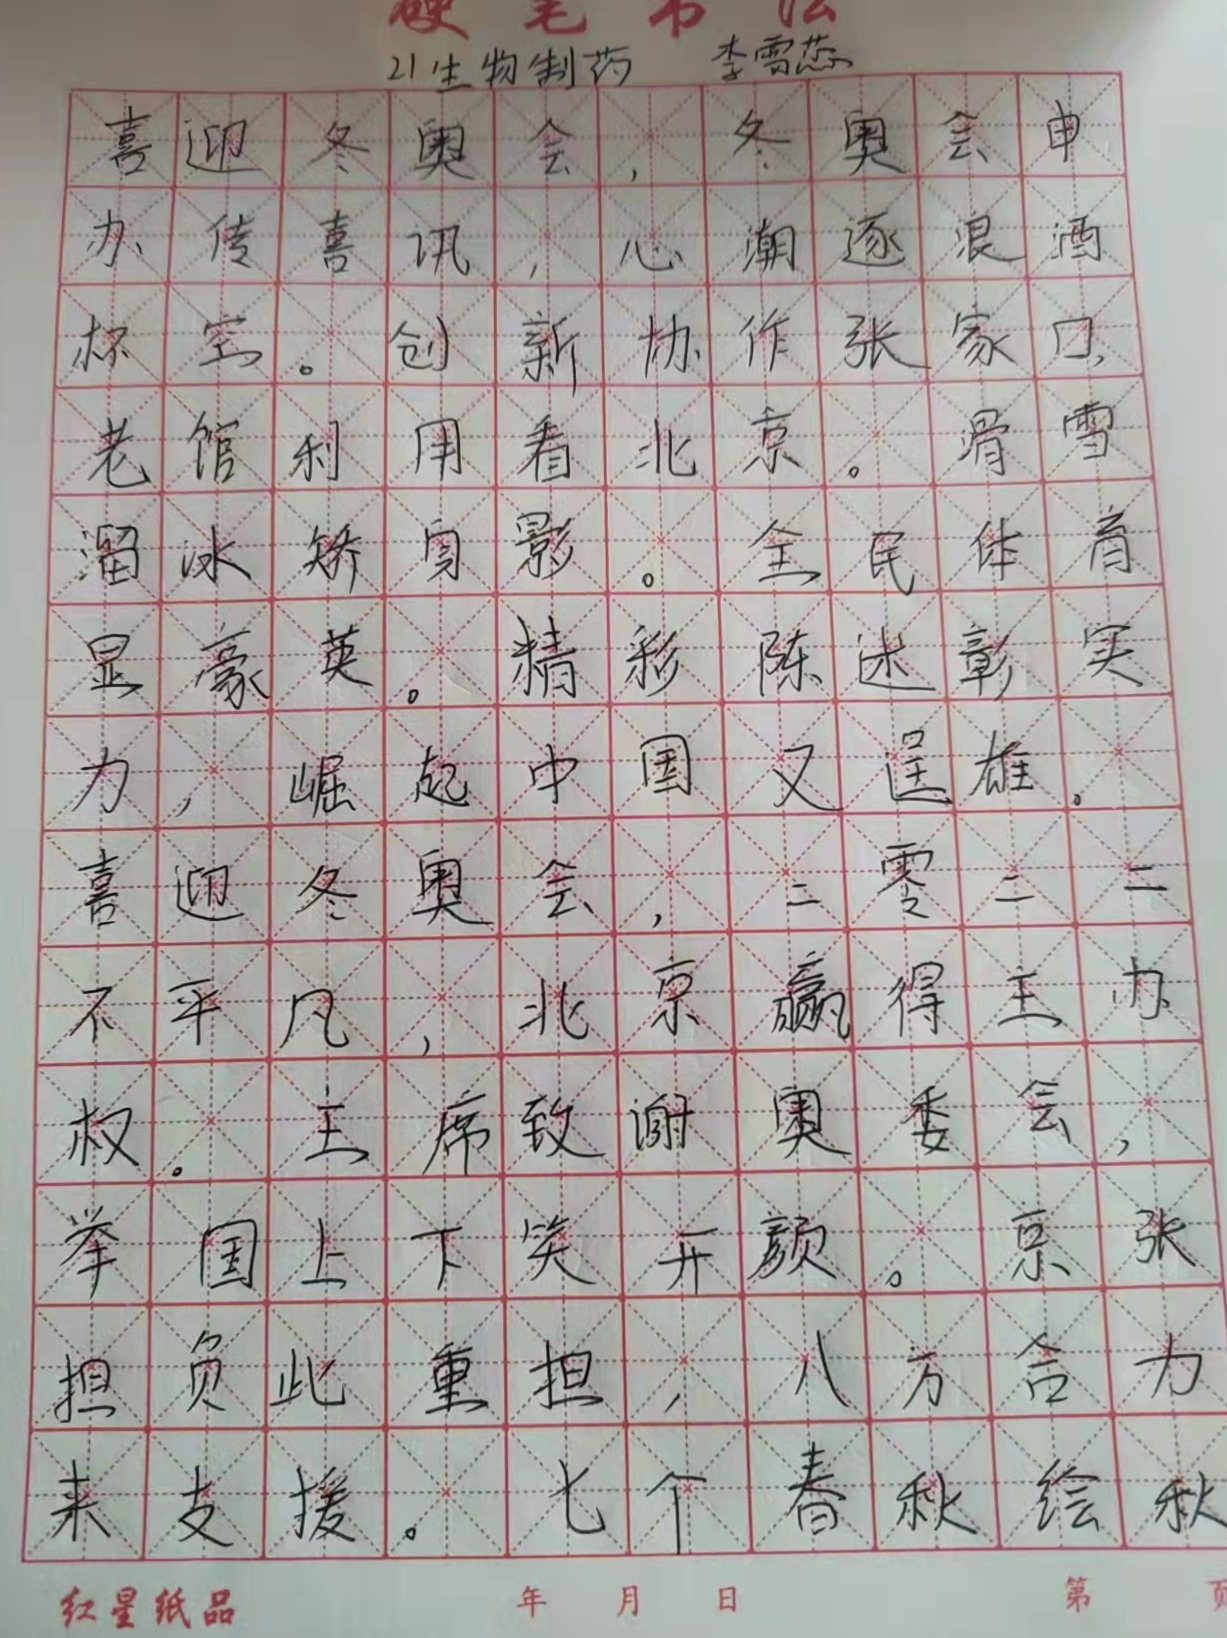 硬笔书法
21生物制药 李雪蕊
喜迎冬奥会,冬奥会申
办传喜讯,心潮逐浪酒
杯空。创新协作张家口,
老馆利用看北京。滑雪
溜冰矫身影。全民体育
显豪英。精彩陈述彰实
力,崛起中国又逞雄。
喜迎冬奥会,二零二二
不平凡,北京赢得主办
权。主席致谢奥委会,
举国上下笑开颜。京张
担负此重担,八方合力
来支援。七个春秋绘秋
红星纸品 年 月 日 第 页